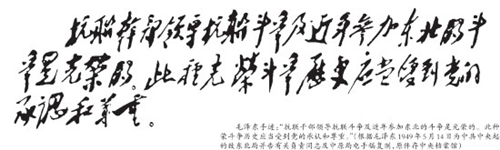 抗联干部领导抗联斗争及近年参加东北的斗
争是光荣的。此种光荣斗争历史应当得到党的
承认和尊重。
毛泽东手迹：“抗联干部领导抗联斗争及近年参加东北的斗争是光荣的。此种
荣斗争历史应当受到党的承认和尊重。”(根据毛泽东1949年5月14日为中共中央起
的致东北局并告有关负责同志及中原局电手稿复制，原件存中央档案馆)